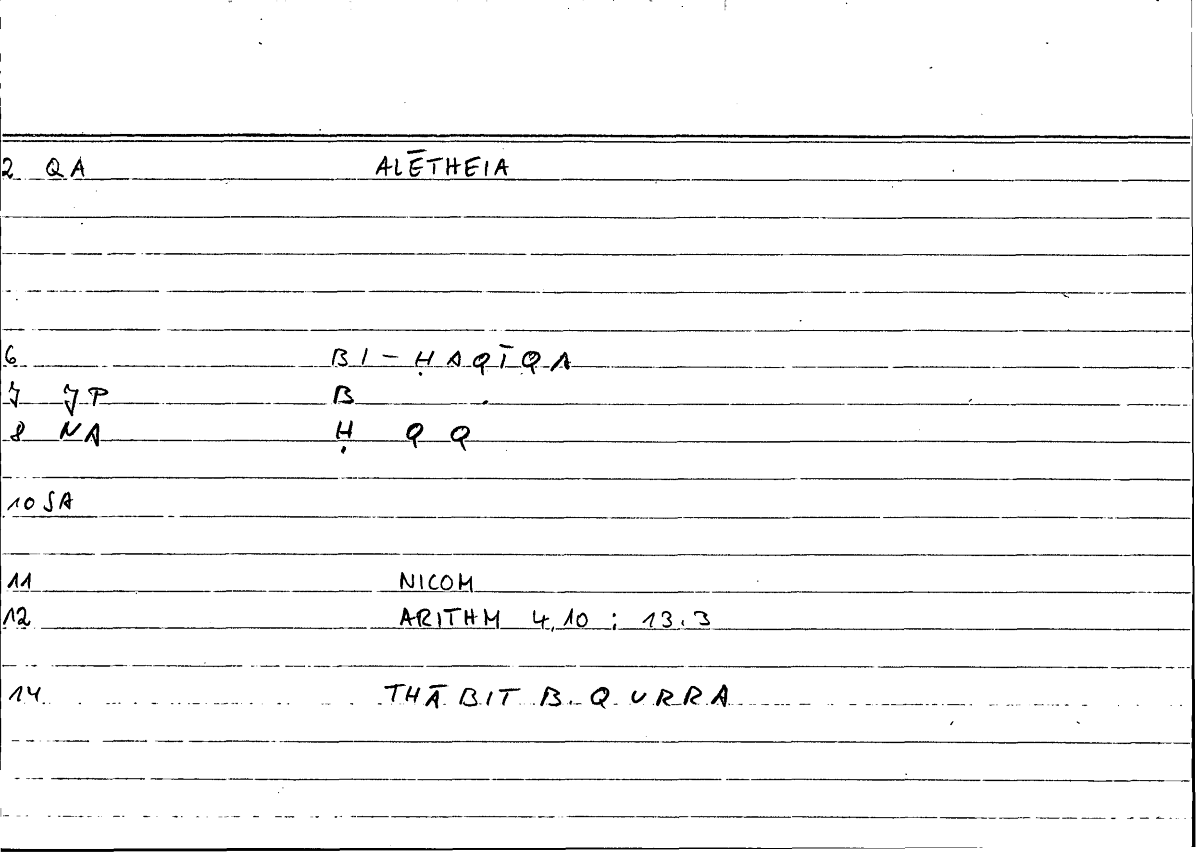 2 QA ALĒTHEIA
6 BI-ḤAQĪQA
7 JP B
8 NA Ḥ Q Q
10 SA
11 NICOM
12 ARITHM 4,10 ; 13.3
14 THĀBIT B. QURRA